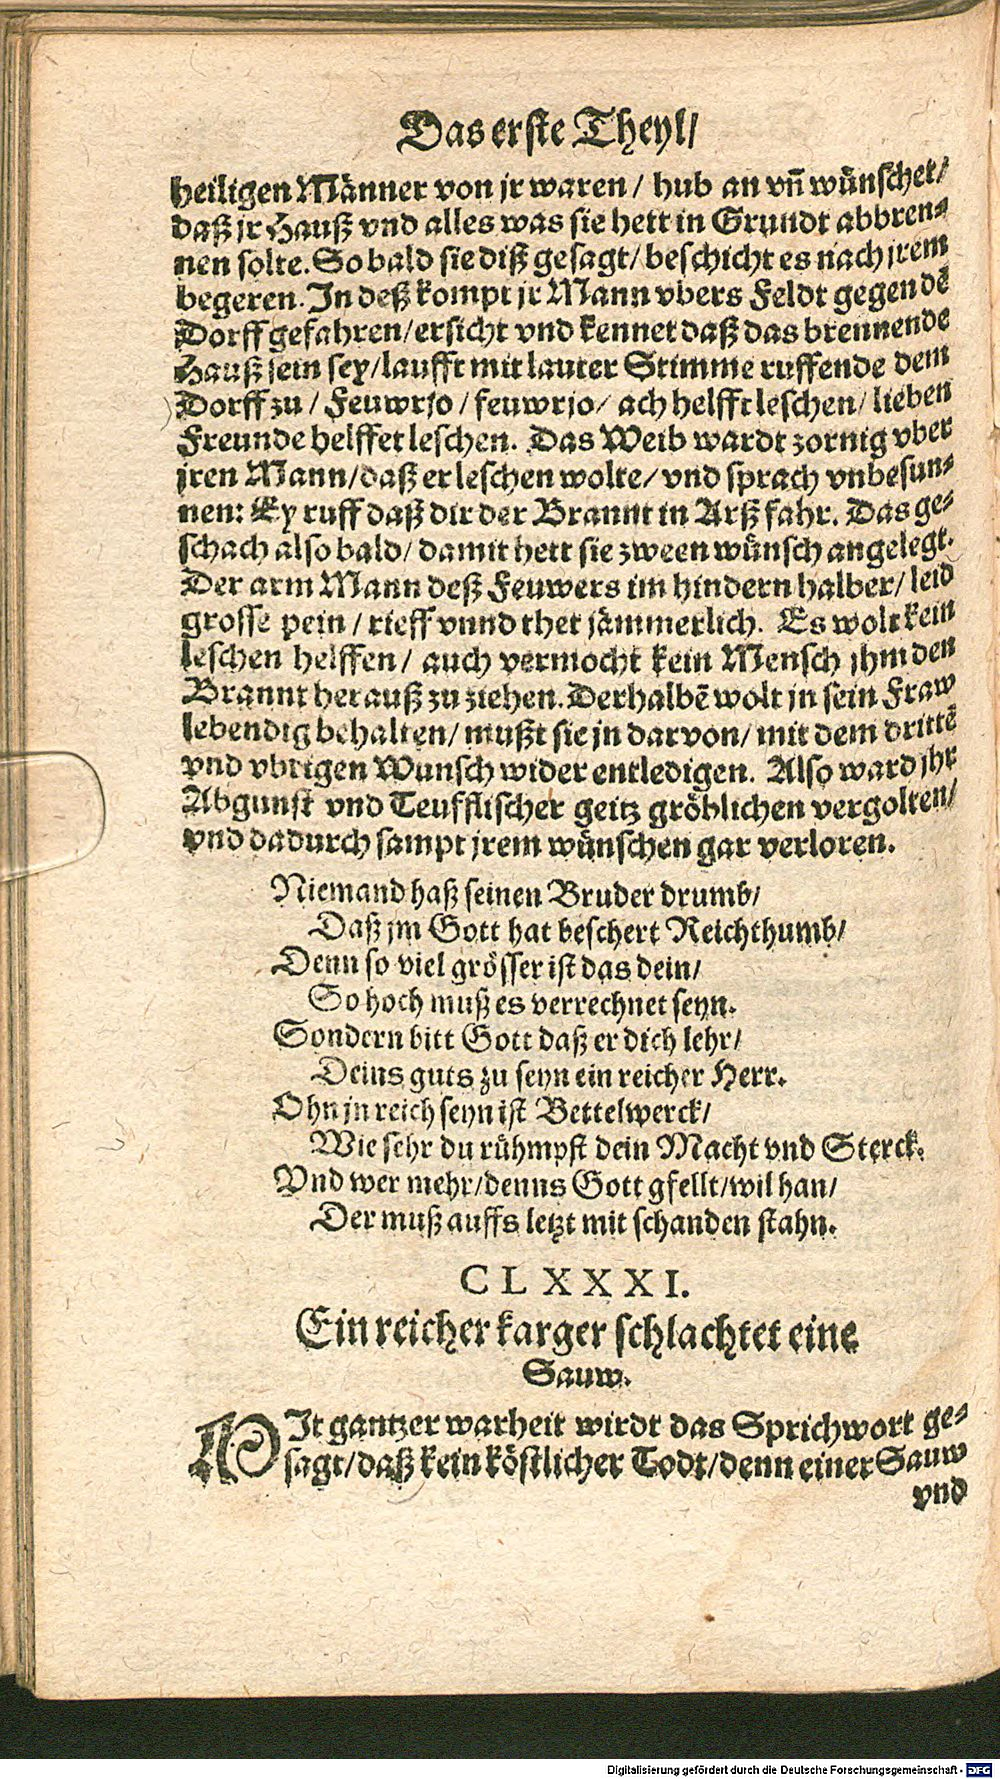 Das erste Theyl/
heiligen Männer von jr waren / hub an vn̄ wünschet/
daß jr Hauß vnd alles was sie hett in Grundt abbren⸗
nen solte. So bald sie diß gesagt/ beschicht es nach jrem
begeren. In deß kompt jr Mann vbers Feldt gegen dē
Dorff gefahren/ ersicht vnd kennet daß das brennende
Hauß sein sey/ laufft mit lauter Stimme ruffende dem
Dorff zu / Feuwrjo / feuwrjo/ ach helfft leschen/ lieben
Freunde helffet leschen. Das Weib wardt zornig vber
jren Mann/ daß er leschen wolte/ vnd sprach vnbesun⸗
nen: Ey ruff daß dir der Brannt in Arß fahr. Das ge⸗
schach also bald/ damit hett sie zween wünsch angelegt.
Der arm Mann deß Feuwers im hindern halber/ leid
grosse pein / rieff vnnd thet jämmerlich. Es wolt kein
leschen helffen/ auch vermocht kein Mensch jhm den
Brannt herauß zu ziehen. Derhalbē wolt jn sein Fraw
lebendig behalten/ mußt sie jn darvon/ mit dem drittē
vnd vbrigen Wunsch wider entledigen. Also ward jhr
Abgunst vnd Teufflischer geitz gröblichen vergolten/
vnd dadurch sampt jrem wünschen gar verloren.
Niemand haß seinen Bruder drumb/
Daß jm Gott hat beschert Reichthumb/
Denn so viel grösser ist das dein/
So hoch muß es verrechnet seyn.
Sondern bitt Gott daß er dich lehr/
Deins guts zu seyn ein reicher Herr.
Ohn jn reich seyn ist Bettelwerck/
Wie sehr du rühmpst dein Macht vnd Sterck.
Vnd wer mehr/ denns Gott gfellt/ wil han/
Der muß auffs letzt mit schanden stahn.
CLXXXI.
Ein reicher karger schlachtet eine
Sauw.
MIt gantzer warheit wirdt das Sprichwort ge⸗
sagt/ daß kein köstlicher Todt/ denn einer Sauw
vnd
Digitalisierung gefördert durch die Deutsche Forschungsgemeinschaft - DFG